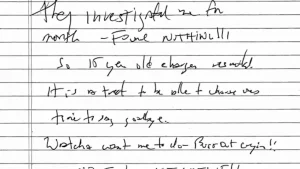 They investigated me for
month – Found NOTHING!!!
So 15 year old charges resulted.
It is a treat to be able to choose ones
time to say goodbye.
Watcha want me to do – Burst out cryin!!
NOTHING!!